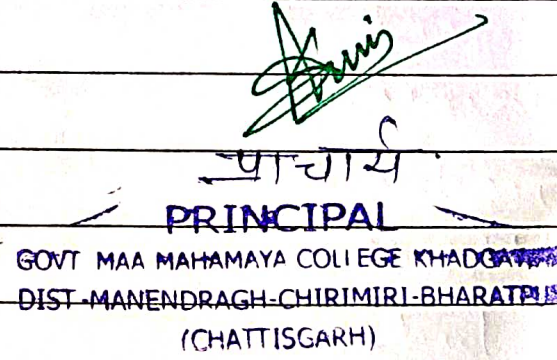 प्राचार्य
PRINCIPAL
GOVT MAA MAHAMAYA COLLEGE
DIST-MANENDRAGH-CHIRIMIRI-BHARATPUR
(CHATTISGARH)